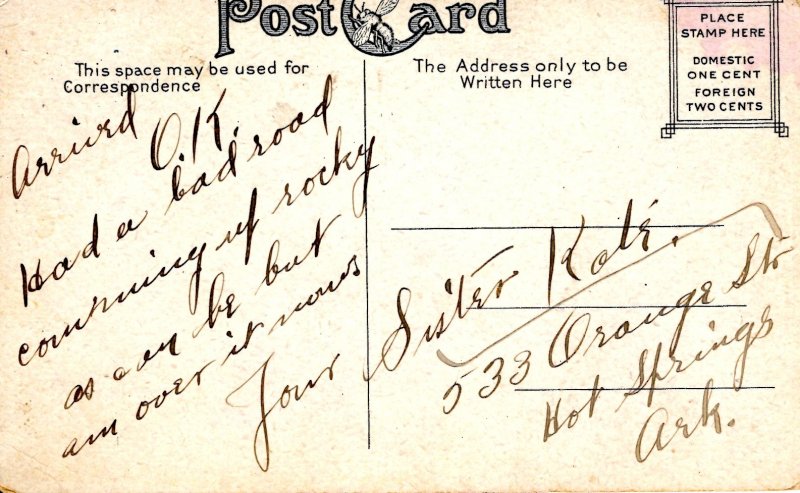 Post Card
This space may be used for
Correspondence
The Address only to be
Written Here
PLACE
STAMP HERE
DOMESTIC
ONE CENT
FOREIGN
TWO CENTS
Arrived O.K.
Had a bad road
comming up rocky
as can be but
am over it nows
Your Sister Kate.
533 Orange Str
Hot Springs
Ark.